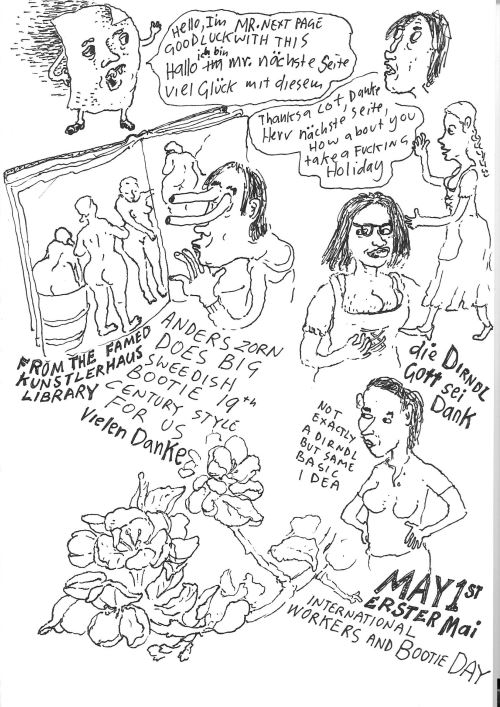 Hello, I'm MR. NEXT PAGE
GOOD LUCK WITH THIS
ich bin
Hallo mr. nächste Seite
viel Glück mit diesem
Thanks a Lot, Danke
Herr nächste Seite,
How about you
take a FUCKING
Holiday
FROM THE FAMED
KUNSTLERHAUS
LIBRARY
ANDERS ZORN
DOES BIG
SWEDISH
BOOTIE 19th
CENTURY STYLE
FOR US
Vielen Danke
die DIRNDL
Gott sei
Dank
NOT
EXACTLY
A DIRNDL
BUT SAME
BASIC
IDEA
MAY 1ST
ERSTER Mai
INTERNATIONAL
WORKERS AND BOOTIE DAY